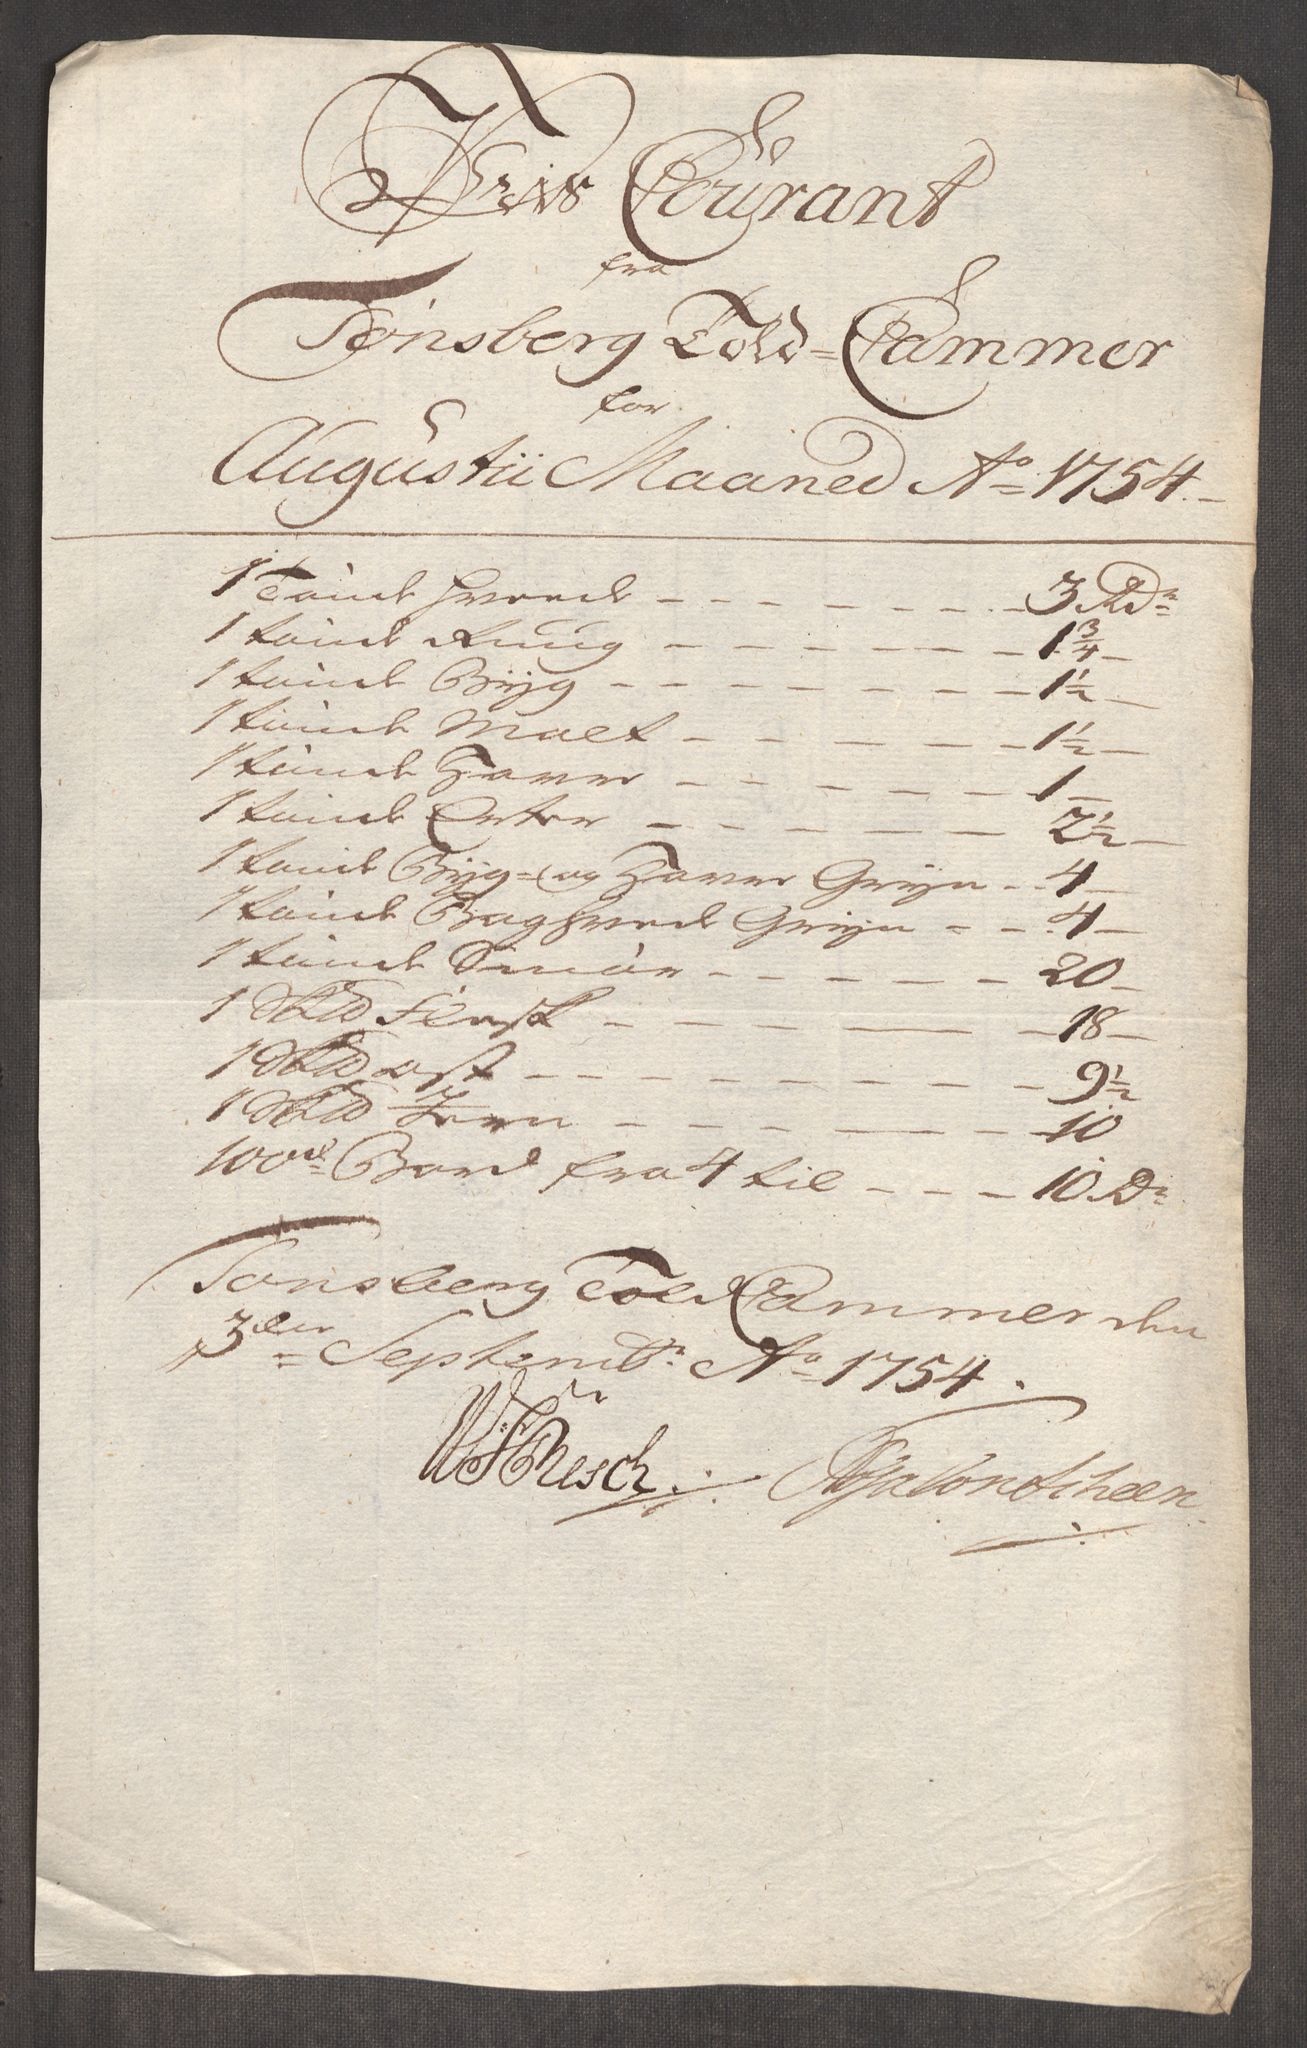 Priis Courant
fra
Tönsberg Told=Cammer
for
Augustii Maaned Ao 1754.
1 Tönde Hvede - - - - - - - 3 Rdr
1 tönde Rug - - - - - - - 1 3/4 -
1 tönde Byg - - - - - - - 1 1/2 -
1 tönde Malt - - - - - - 1 1/2 -
1 tönde Haver - - - - - - 1 -
1 tönde Erter - - - - - 2 1/2 -
1 tönde Byg= og Haver Gryn - - 4 -
1 tönde Boghvede Gryn - - - 4 -
1 tönde Smör - - - - - - 20 -
1 Skd Flesk - - - - - - 18 -
1 Skd ost - - - - - - - 9 1/2
1 Skd Jern - - - - - - 10
100de Bord fra 4 til - - - 10 Dr
Tonsberg Told Cammer den
3den Septembr Ao 1754.
Resch